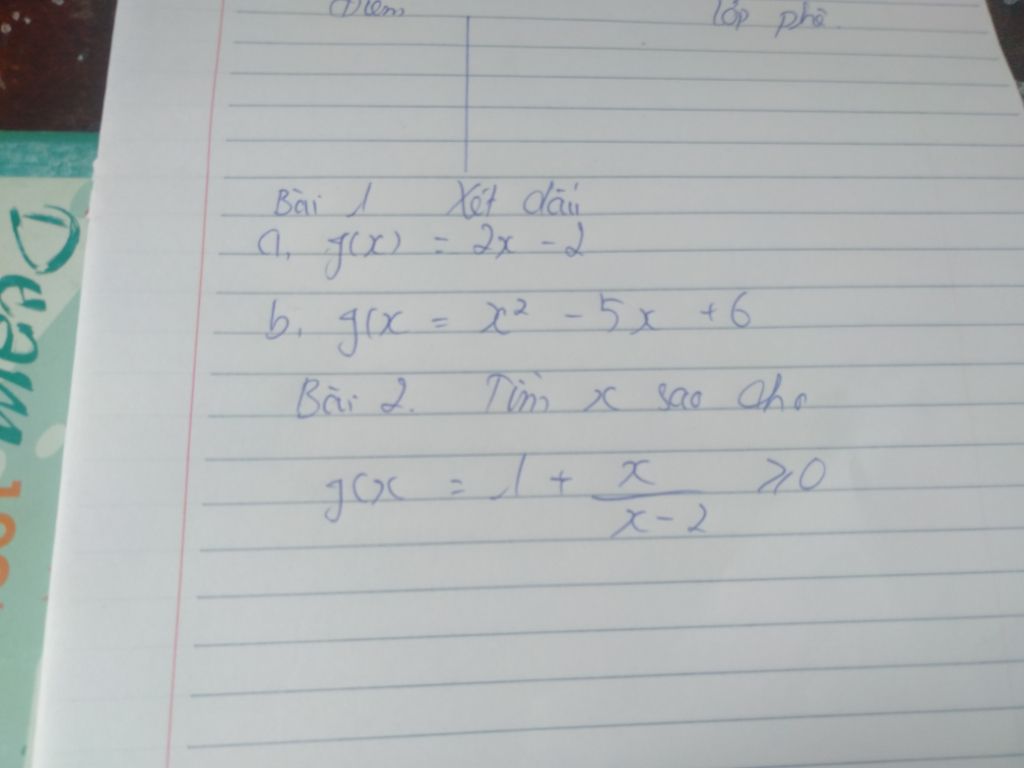 Điểm lớp phê
Bài 1 Xét dấu
a, g(x) = 2x - 2
b, g(x = x² - 5x + 6
Bài 2. Tìm x sao cho
g(x = 1 + x/(x - 2) ≥ 0
Dream